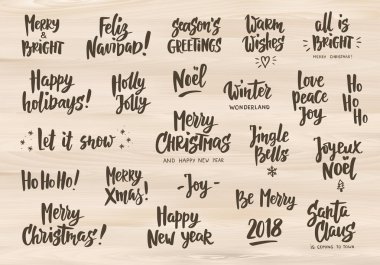 Merry
&
BRIGHT
Feliz
Navidad!
SEASON'S
GREETINGS
Warm
Wishes
all is
BRIGHT
MERRY CHRISTMAS!
Happy
holidays!
Holly
Jolly
Noël
Winter
WONDERLAND
Love
Peace
Joy
Ho
Ho
Ho
let it snow
Merry
CHRISTMAS
AND HAPPY NEW YEAR
Jingle
Bells
Joyeux
Noël
Ho Ho Ho!
Merry
Xmas!
-Joy-
Be Merry
Merry
Christmas!
Happy
New year
2018
Santa
Claus
IS COMING TO TOWN